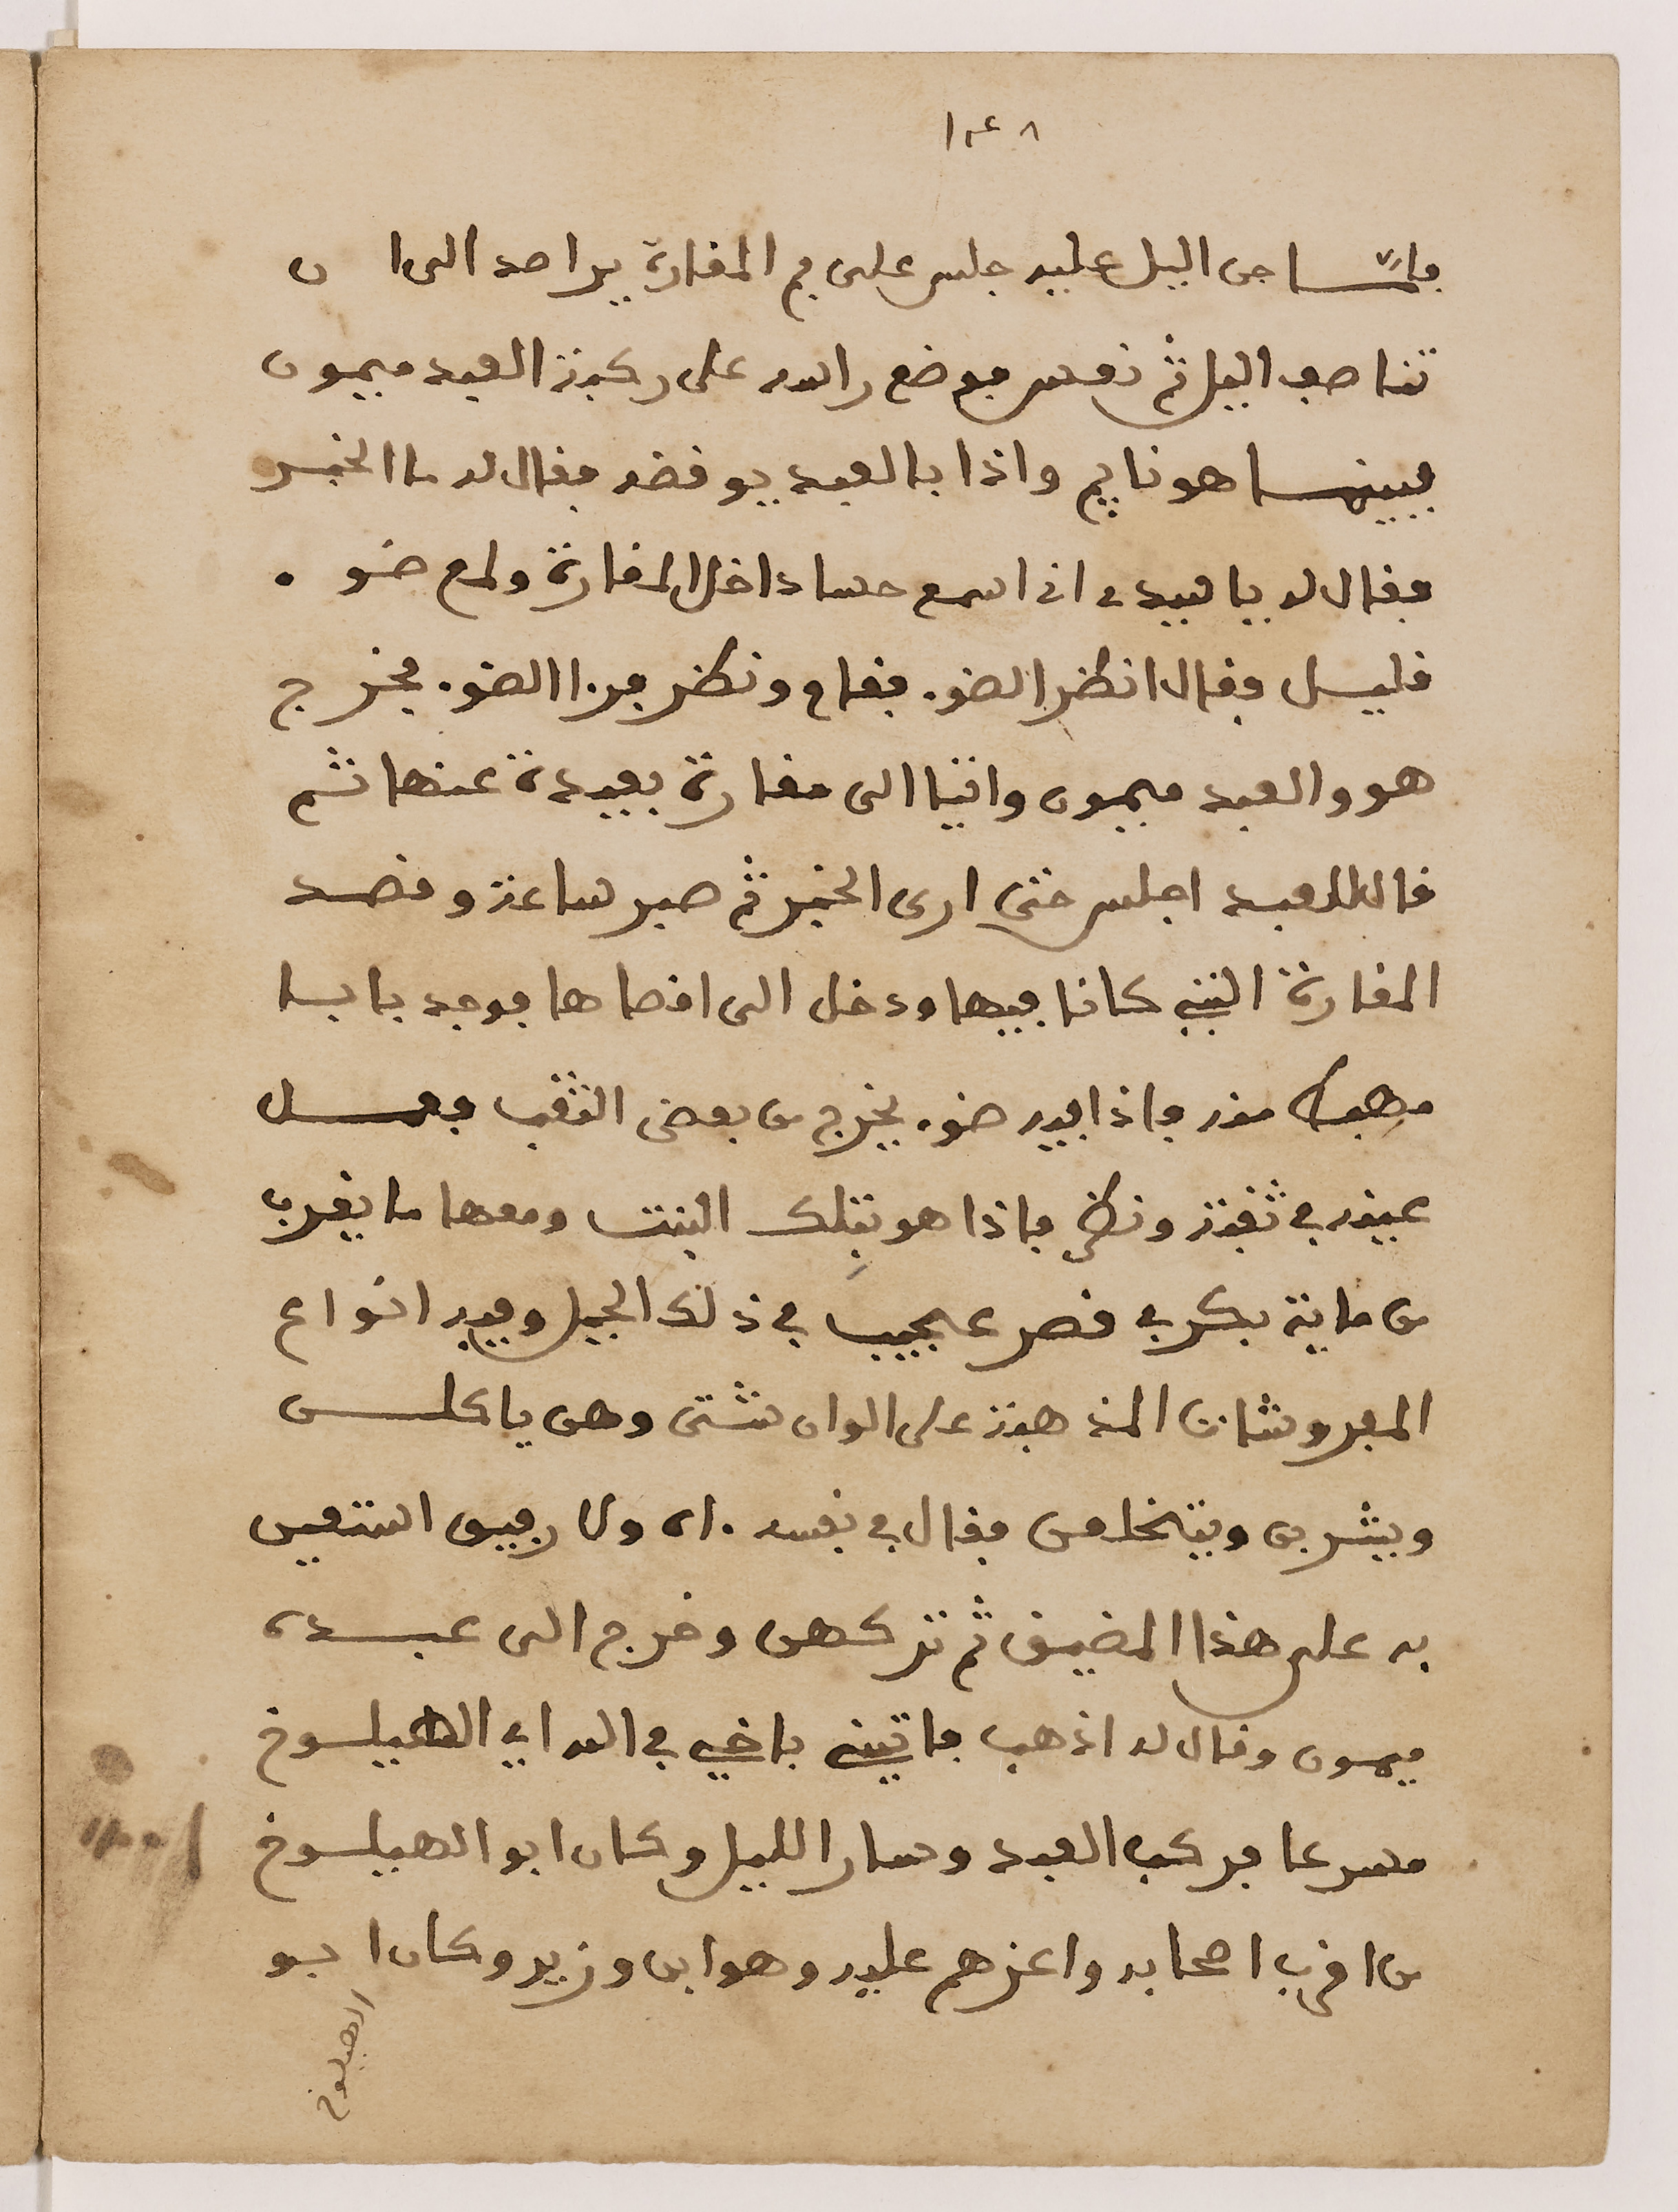 ١٤٨
فلما جن اليل عليه جلس على فم المغارة يراصد الى ان
تناصف اليل ثم نعس فوضع راسه على ركبة العبد ميمون
فبينما هو نايم واذا بالعبد يوقضه فقال له ما الخبر
فقال له يا سيدي اني اسمع حسا داخل المغارة ولمع ضو
قليل فقال انظر الضو. فقام ونظر فرءا الضو. فخرج
هو والعبد ميمون واتيا الى مغارة بعيدة عنها ثم
قال للعبد اجلس حتى ارى الخبر ثم صبر ساعة وقصد
المغارة التي كانا فيها ودخل الى اقصاها فوجد بابا
فهبط منه فاذا فيه ضو. يخرج من بعض الثقب فجعل
عينه في ثقبة ونظر فاذا هو بتلك البنت ومعها ما يقرب
من ماية بكر في قصر عجيب في ذلك الجبل وفيه انواع
المفروشات المذهبة على الوان شتى وهن ياكلن
ويشربن ويتخلعن فقال في نفسه .اه ولا رفيق استعين
به على هذا المضيق ثم تركهن وخرج الى عبده
ميمون وقال له اذهب فاتيني باخي في الله ابي الهيلوخ
مسرعا فركب العبد وسار الليل وكان ابو الهيلوخ
من اقرب اصحابه واعزهم عليه وهو ابن وزير وكان ابو
الهيلوخ